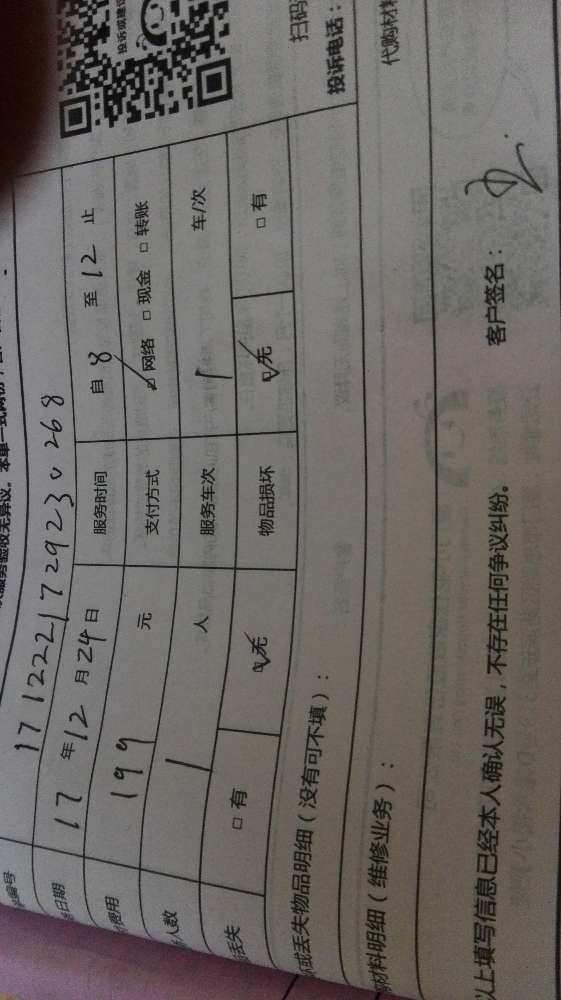 服务验收无异议。本单一式两份，
编号 1712221729230268
日期 17 年 12 月 24 日 服务时间 自 8 至 12 止
费用 199 元 支付方式 ☑网络 □现金 □转账
人数 1 人 服务车次 1 车/次
丢失 □有 ☑无 物品损坏 ☑无 □有
投诉或建议
扫码
投诉电话：
或丢失物品明细（没有可不填）：
材料明细（维修业务）：
代购材料
以上填写信息已经本人确认无误，不存在任何争议纠纷。 客户签名：